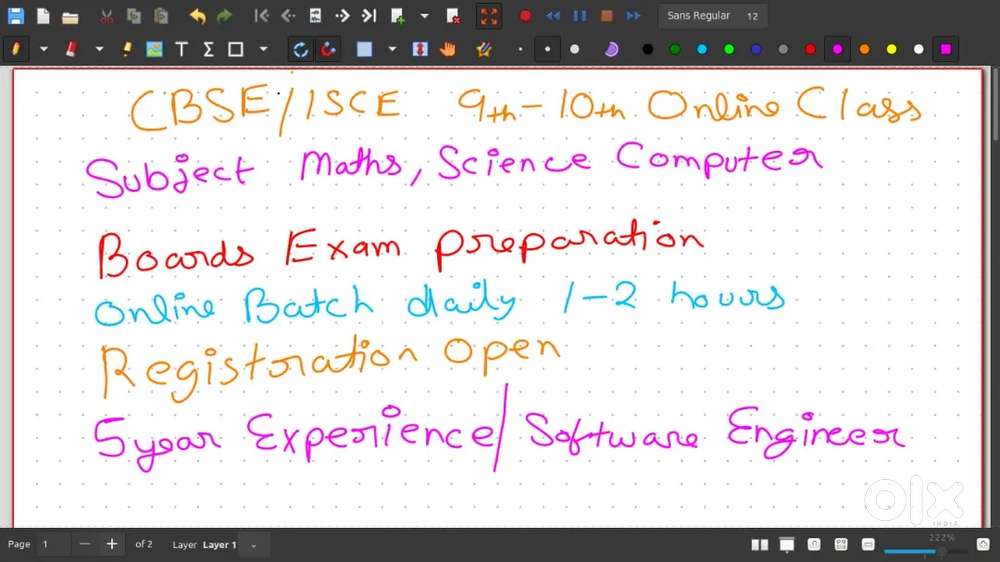 Sans Regular 12
CBSE/ISCE 9th-10th Online Class
Subject Maths, Science Computer
Boards Exam preparation
Online Batch daily 1-2 hours
Registoration open
5 year Experience/Software Engineer
olx
INDIA
Page 1 of 2 Layer Layer 1 222%